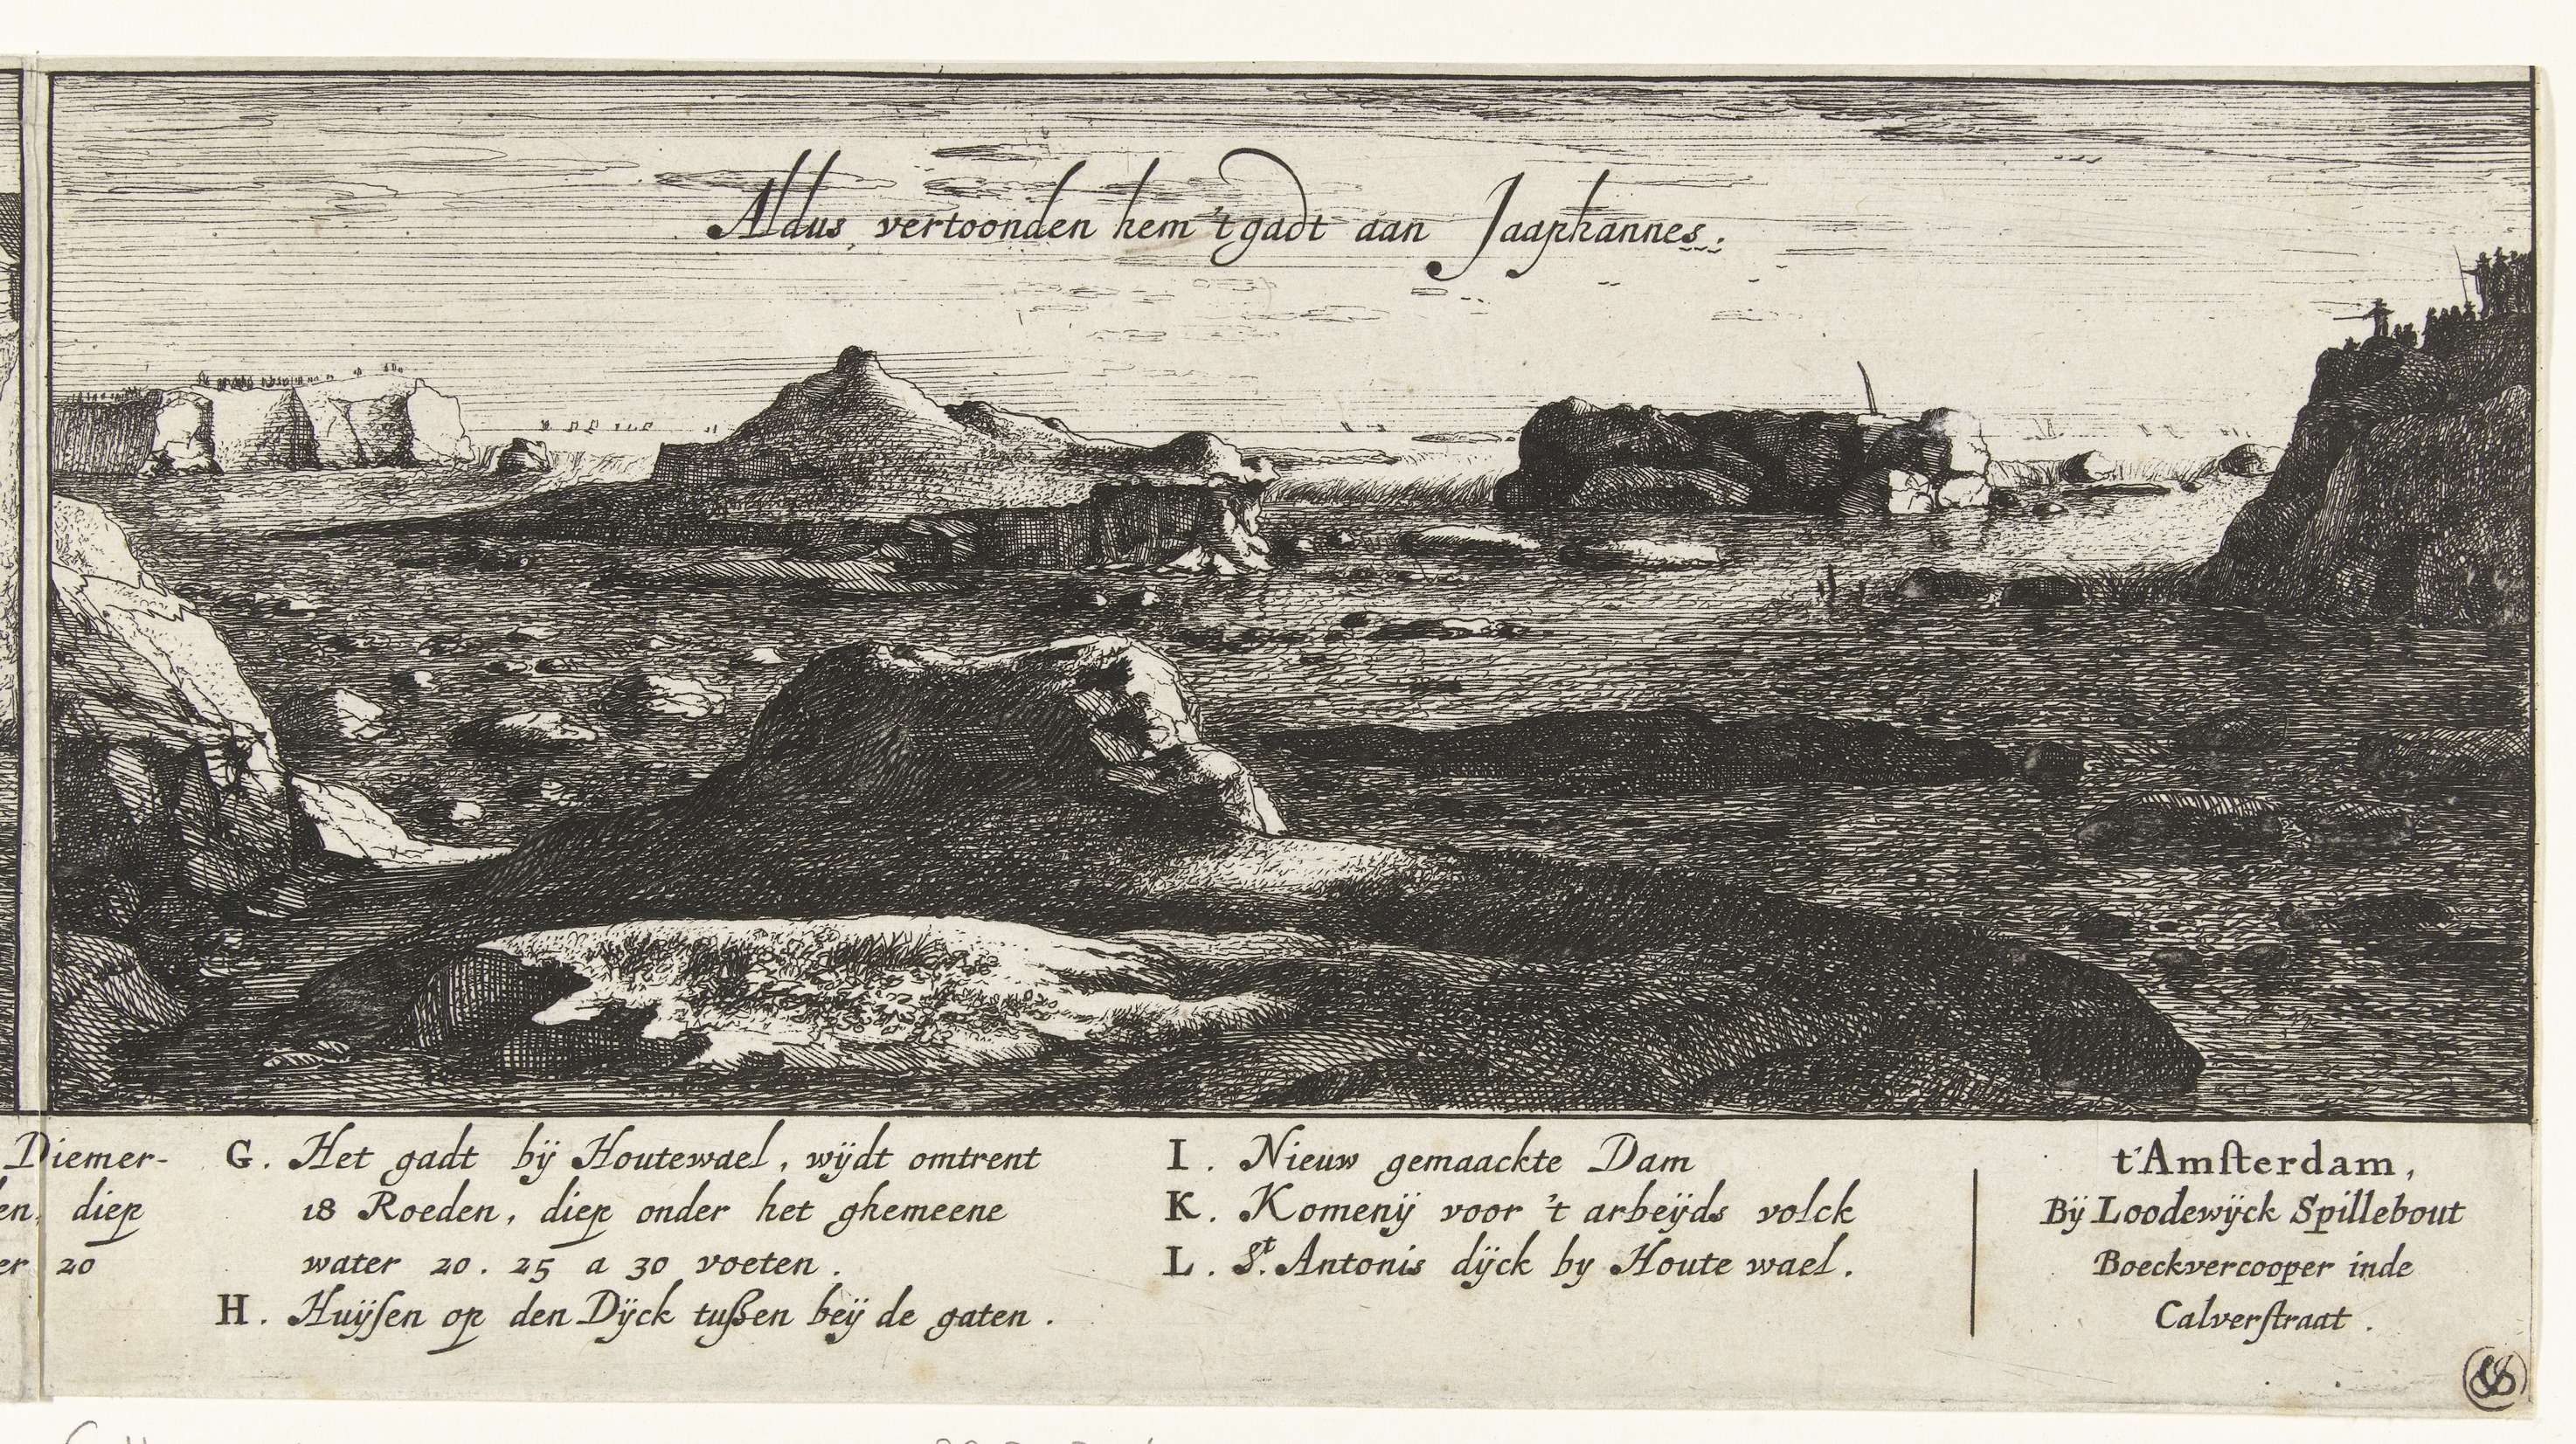 Aldus vertoonden hem 't gadt aan Jaaphannes.
Diemer-
diep
20
G. Het gadt bÿ Houtewael, wÿdt omtrent
18 Roeden, diep onder het ghemeene
water 20. 25 a 30 voeten.
H. Huÿſen op den Dÿck tußen beÿ de gaten.
I. Nieuw gemaackte Dam
K. Komenÿ voor 't arbeÿds volck
L. St. Antonis dÿck by Houte wael.
t'Amſterdam,
Bÿ Loodewÿck Spillebout
Boeckvercooper inde
Calverſtraat.